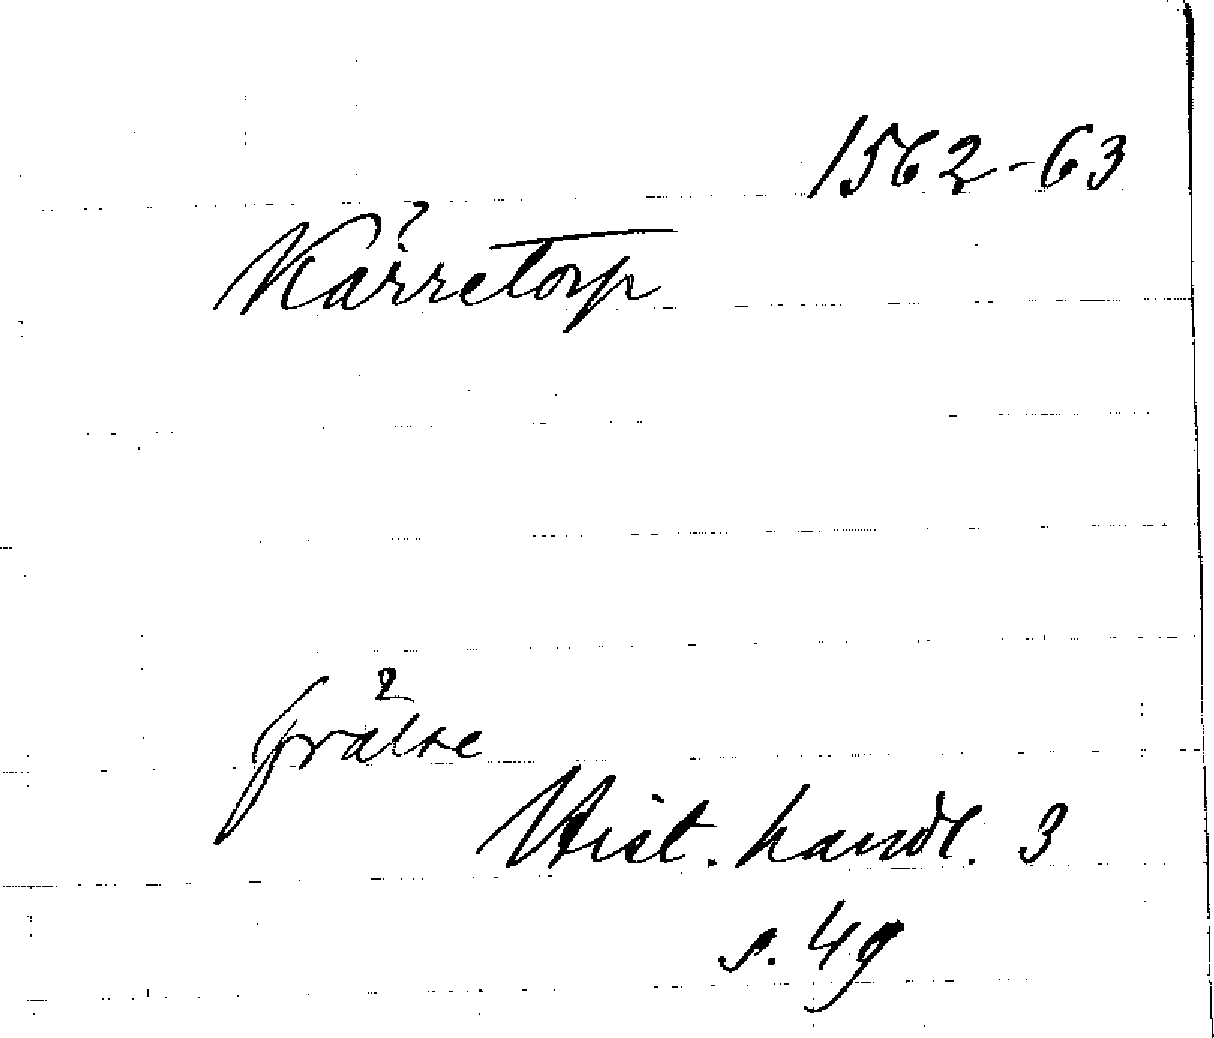 1562-63
?
Kärretorp
2
frälse
Hist. handl. 3
s. 49